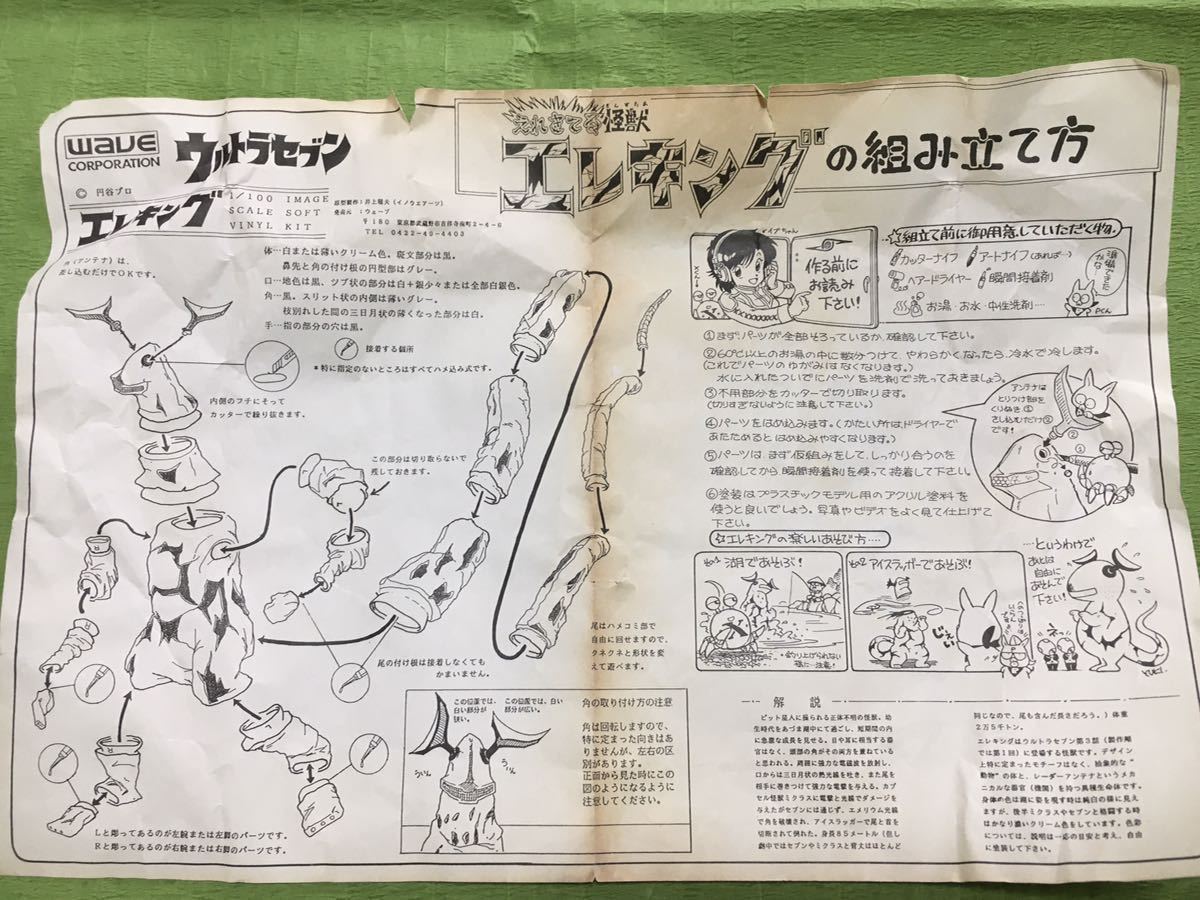 WAVE
CORPORATION
ウルトラセブン
© 円谷プロ
エレキング
1/100 IMAGE
SCALE SOFT
VINYL KIT
発売元 :ウェーブ
〒180 東京都武蔵野市吉祥寺南町2-4-6
TEL 0422-49-4403
怪獣
エレキングの組み立て方
角(アンテナ)は、
差し込むだけでOKです。
体…白または薄いクリーム色。斑文部分は黒。
鼻先と角の付け根の円型部はグレー。
口…地色は黒、ツブ状の部分は白+銀少々または全部白銀色。
角…黒。スリット状の内側は薄いグレー。
枝別れした間の三日月状の薄くなった部分は白。
手…指の部分の穴は黒。
接着する個所
*特に指定のないところはすべてハメ込み式です。
内側のフチにそって
カッターで繰り抜きます。
この部分は切り取らないで
残しておきます。
尾の付け根は接着しなくても
かまいません。
尾はハメコミ部で
自由に回せますので、
クネクネと形状を変
えて遊べます。
Lと彫ってあるのが左腕または左脚のパーツです。
Rと彫ってあるのが右腕または右脚のパーツです。
この位置では、
白い部分が
狭い。
この位置では、白い
部分が広い。
角の取り付け方の注意
角は回転しますので、
特に定まった向きはあ
りませんが、左右の区
別があります。
正面から見た時にこの
図のようになるように
注意してください。
作る前に
お読み
下さい!
☆組立て前に御用意していただく物。
カッターナイフ
アートナイフ(あれば…)
ヘアードライヤー
瞬間接着剤
お湯・お水・中性洗剤…
準備できた
かな…
Pくん
①まず、パーツが全部そろっているか、確認して下さい。
②60℃以上のお湯の中に数分つけて、やわらかくなったら、冷水で冷します。
(これでパーツのゆがみはなくなります。)
水に入れたついでにパーツを洗剤で洗っておきましょう。
③不用部分をカッターで切り取ります。
(切りすぎないように注意して下さい。)
④パーツをはめ込みます。(かたい所はドライヤーで
あたためると はめ込みやすくなります。)
⑤パーツは、まず仮組みをして、しっかり合うのを
確認してから瞬間接着剤を使って接着して下さい。
⑥塗装はプラスチックモデル用のアクリル塗料を
使うと良いでしょう。写真やビデオをよく見て仕上げて
下さい。
アンテナは
とりつけ部を
くりぬき①
さし込むだけ②
です!
☆エレキングの楽しいあそび方……
その1 湖であそぶ!
釣り上げられない
様に…注意!
その2 アイスラッガーであそぶ!
……というわけで
あとは
自由に
あそんで
下さい!
YUKI.
解説
ピット星人に操られる正体不明の怪獣。幼
生時代をあづま湖中にて過ごし、短期間の内
に急激な成長を見せる。目や耳に相当する器
官はなく、頭部の角がその両方を兼ねている
と思われる。周囲に強力な電磁波を放射し、
口からは三日月状の熱光線を吐き、また尾を
相手に巻きつけて強力な電撃を与える。カプ
セル怪獣ミクラスに電撃と光線でダメージを
与えたがセブンには通じず、エメリウム光線
で角を破壊され、アイスラッガーで尾と首を
切断されて倒れた。身長85メートル(但し
劇中ではセブンやミクラスと背丈はほとんど
同じなので、尾も含んだ長さだろう。)体重
2万5千トン。
エレキングはウルトラセブン第3話(製作順
では第1回)に登場する怪獣です。デザイン
上特に定まったモチーフはなく、抽象的な“
動物”の体と、レーダーアンテナというメカ
ニカルな器官(機関)を持つ異種生命体です。
身体の色は湖に姿を現す時は純白の様に見え
ますが、後半ミクラスやセブンと格闘する時
はかなり濃いクリーム色をしています。色彩
については、説明は一応の目安と考え、自由
に塗装して下さい。